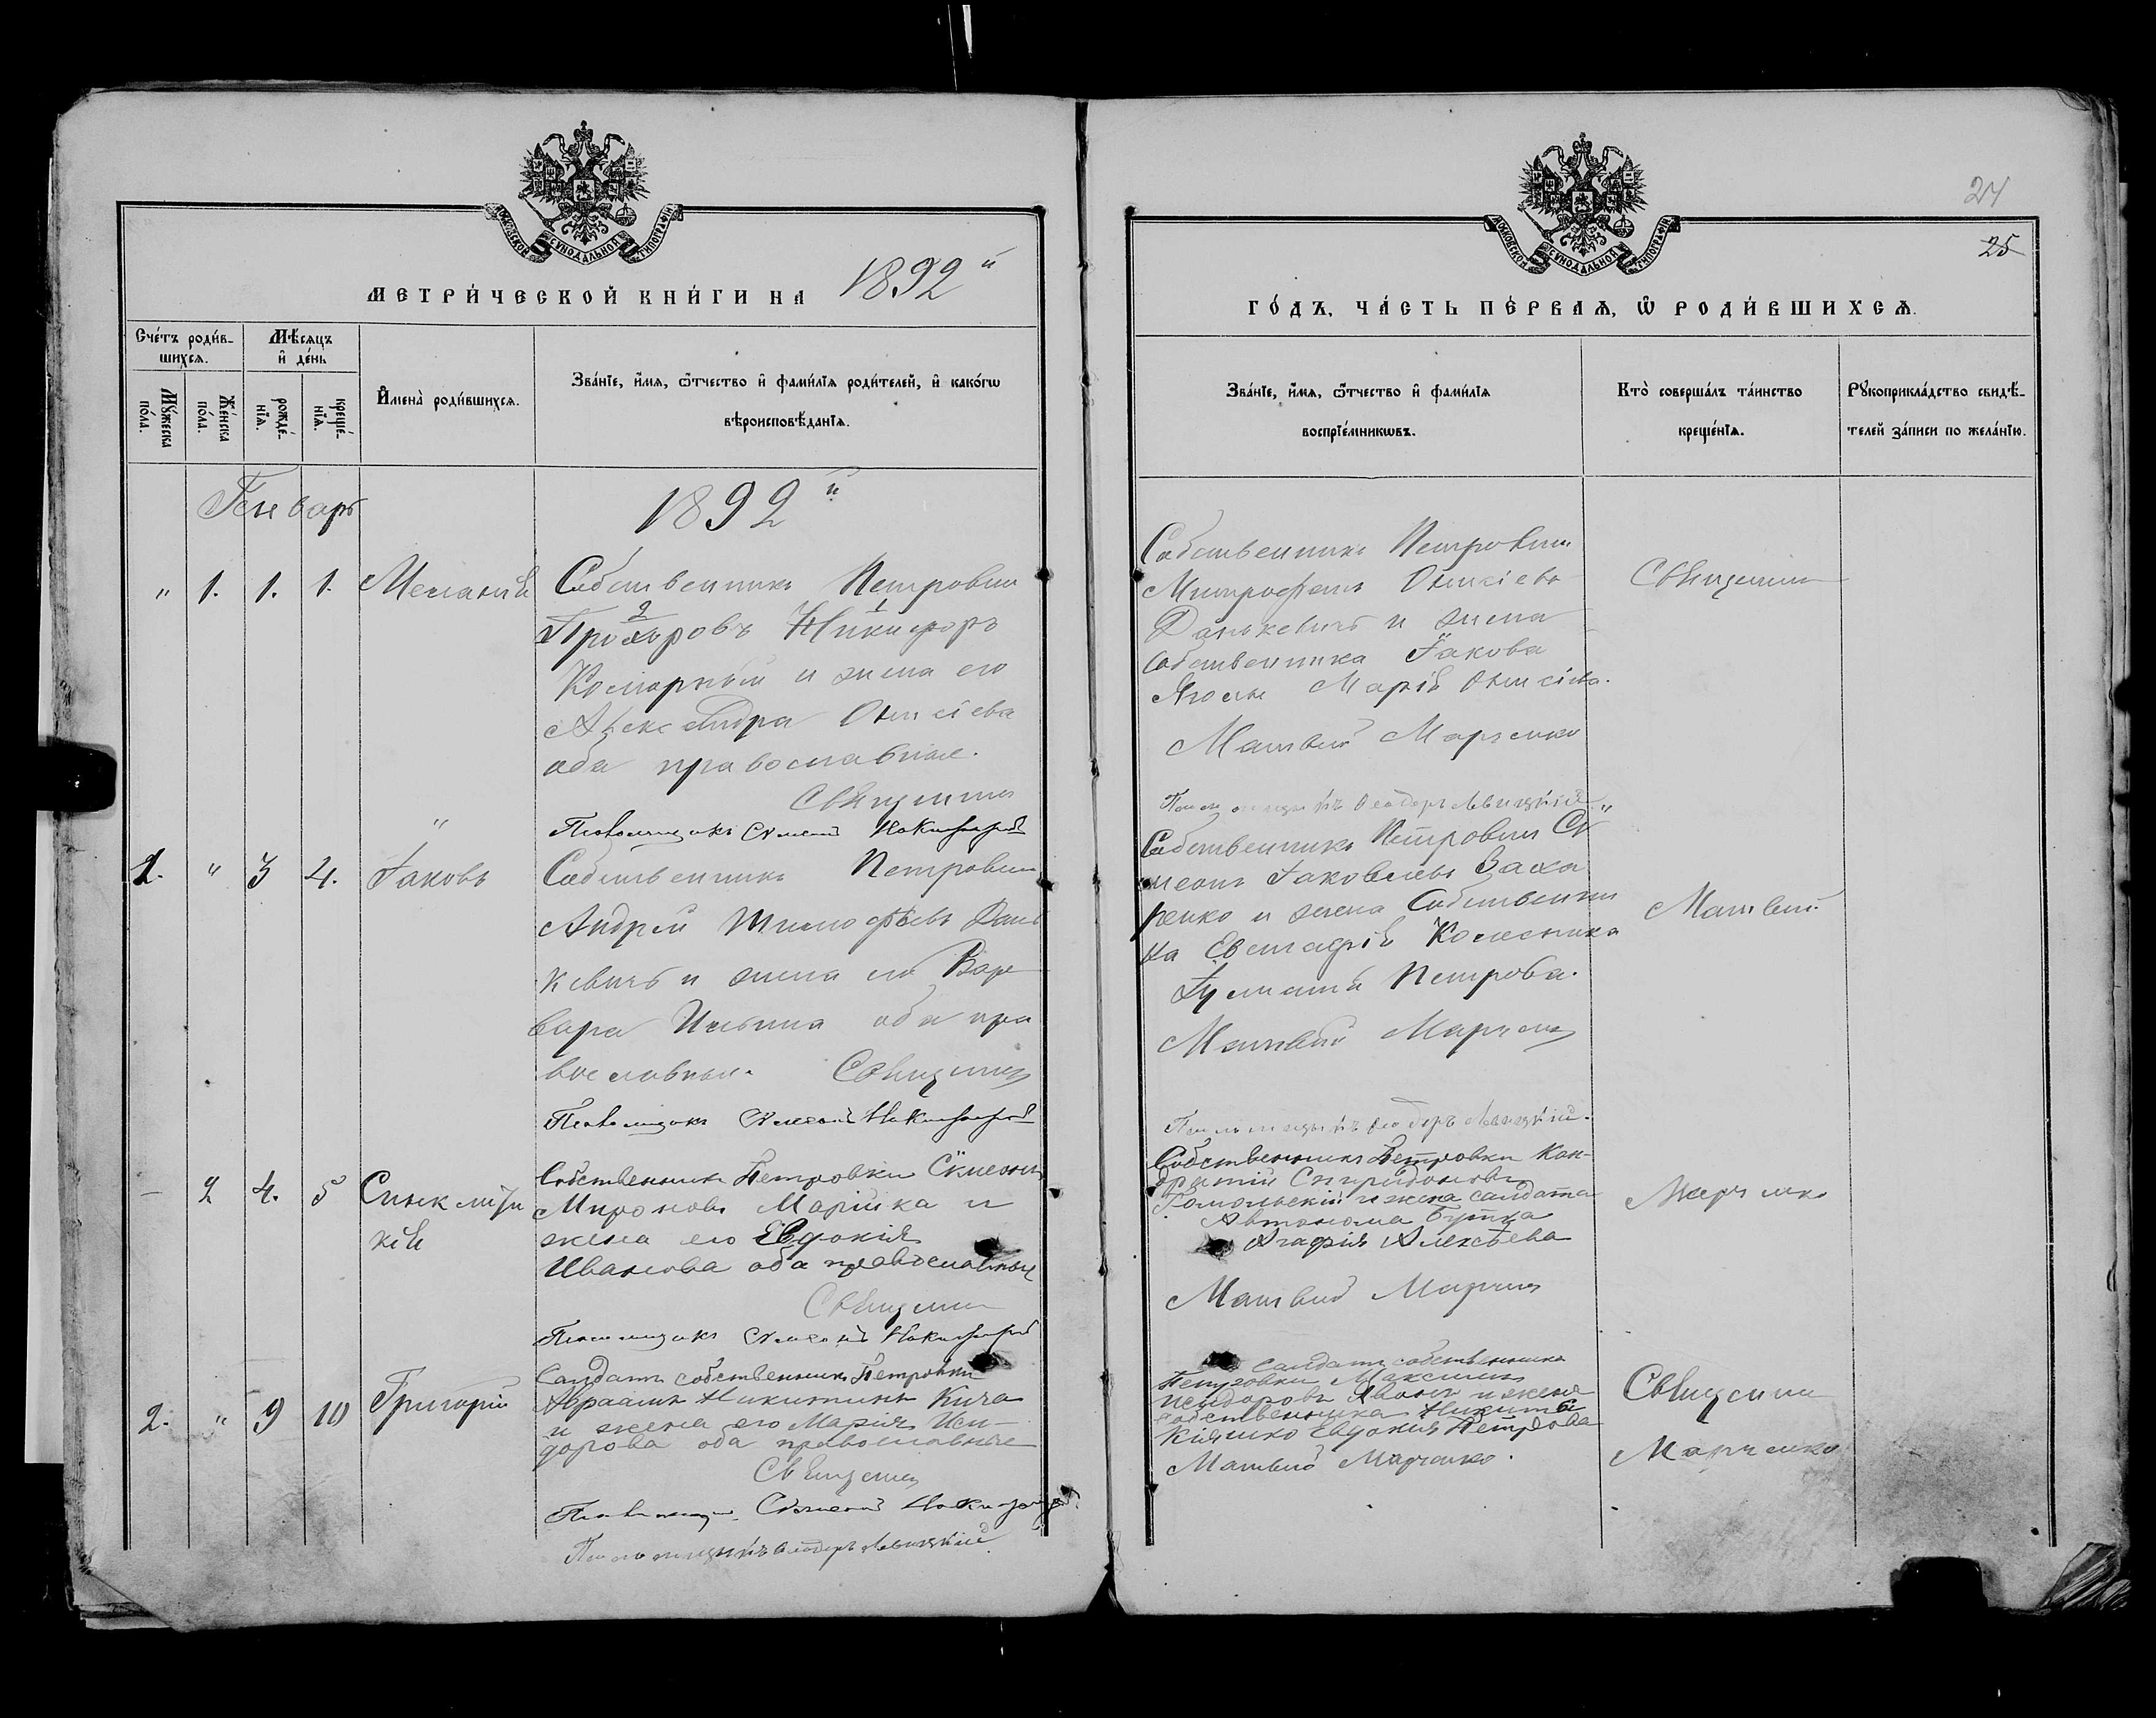 МОСКОВСКОЙ СУНОДАЛЬНОЙ ТИПОГРАФІИ
МЕТРИ́ЧЕСКОЙ КНИ́ГИ НА 1892 й
Сче́тъ роди́в-
шихсѧ.
Мѣ́сѧцъ
и҆ де́нь
Мꙋ́жеска
по́ла.
Же́нска
по́ла.
рожде́-
нїѧ.
креще́-
нїѧ.
И҆мена̀ роди́вшихсѧ.
Зва́нїе, и҆́мѧ, ѻ҆́тчество и҆ фами́лїѧ роди́телей, и҆ како́гѡ
вѣроисповѣ́данїѧ.
Генварь
1892 й
" 1. 1. 1. Меланія
Собственникъ Петровки
2 1
Прохоровъ Никифоръ
Коморный и жена его
Александра Онисіева
оба православные.
Священникъ
"
Псаломщикъ Симеонъ
1. " 3 4. Іаковъ
Собственникъ Петровки
Андрей Тимофѣевъ Дань
кевичъ и жена его Вар
вара Ильина оба пра
вославные. Священникъ
Псаломщикъ Симеонъ
— 2 4. 5 Синклити
кія
Собственникъ Петровки Сѵмеонъ
Мироновъ Марійка и
жена его Евдокія
Иванова оба православные
Священникъ
Псаломщикъ Симеонъ
2. " 9 10 Григорій
Солдатъ собственникъ Петровки
Авраамъ Никитинъ Кича
и жена его Марія Иси-
дорова оба православные
Священникъ
Псаломщикъ Сѵмеонъ
Ѳеодоръ Левицкій
24
25
МОСКОВСКОЙ СУНОДАЛЬНОЙ ТИПОГРАФІИ
ГО́ДЪ, ЧА́СТЬ ПЕ́РВАѦ, Ѽ РОДИ́ВШИХСѦ.
Зва́нїе, и҆́мѧ, ѻ҆́тчество и҆ фами́лїѧ
воспрїе́мникѡвъ.
Кто̀ соверша́лъ та́инство
креще́нїѧ.
Рꙋкоприкла́дство свидѣ́-
телей за́писи по жела́нїю.
Собственникъ Петровки
Митрофанъ Онисіевъ
Данькевичъ и жена
собственника Іакова
Марія Онисіева.
Матвей Марченко
Священникъ
Ѳеодоръ Левицкій "
Собственникъ Петровки Сѵ
меонъ Іаковлевъ Заха
ренко и жена Собственни
ка Евстафія Колесника
Іулианія Петрова.
Матвей Марченко
Матвей
Ѳеодоръ Левицкій.
Собственникъ Петровки Кон-
дратій Спиридоновъ
Гомольскій и жена солдата
Автонома Бутка
Агафія Алексѣева
Матвей Марченко
Марченко
Солдатъ собственникъ
Петровки Максимъ
Исидоровъ и жена
собственника Никиты
Кияшко Евдокія Петрова
Матвей Марченко.
Священникъ
Марченко